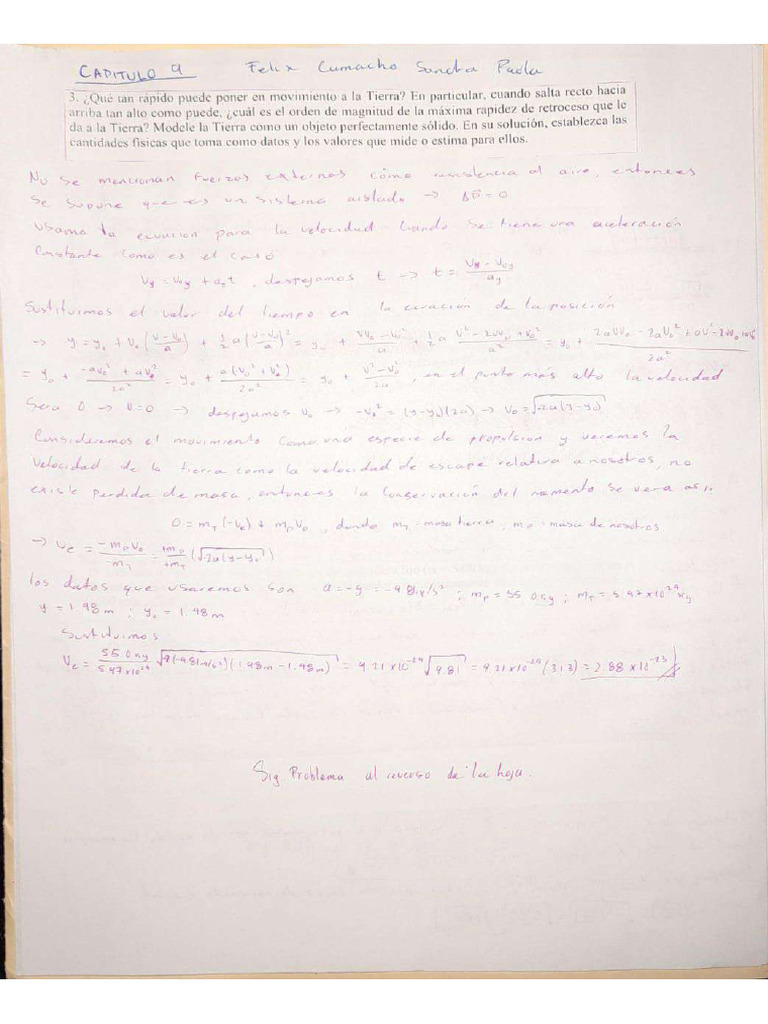 CAPITULO 9 Felix Camacho Sandra Paola
3. ¿Qué tan rápido puede poner en movimiento a la Tierra? En particular, cuando salta recto hacia
arriba tan alto como puede, ¿cuál es el orden de magnitud de la máxima rapidez de retroceso que le
da a la Tierra? Modele la Tierra como un objeto perfectamente sólido. En su solución, establezca las
cantidades físicas que toma como datos y los valores que mide o estima para ellos.
No se mencionan fuerzas externas como resistencia al aire, entonces
se supone que es un sistema aislado → Δp⃗=0
Usamos la ecuacion para la velocidad cuando se tiene una aceleración
constante como es el caso
Vy = V0y + ayt, despejamos t → t = (Vy - V0y)/ay
Sustituimos el valor del tiempo en la ecuación de la posición
→ y = y0 + V0((V-V0)/a) + 1/2 a((V-V0)/a)² = y0 + (VV0-V0²)/a + 1/2 a (V²-2VV0+V0²)/a² = y0 +
= y0 + = y0 + = y0 + (V²-V0²)/2a, en el punto más alto la velocidad
Sera 0 → V=0 → despejamos V0 → -V0² = (y-y0)(2a) → V0 = √-2a(y-y0)
Consideremos el movimiento como una especie de propulsion y veremos la
velocidad de la tierra como la velocidad de escape relativa a nosotros, no
existe perdida de masa, entonces la conservación del momento se vera así:
0 = mT(-Ve) + mpV0, donde mT = masa tierra; mp = masa de nosotros
→ Ve = -mpV0/-mT = +mp/+mT (√-2a(y-y0))
los datos que usaremos son a = -g = -9.81 m/s² ; mp = 55.0kg ; mT = 5.97x10²⁴kg
y = 1.98m ; y0 = 1.48m
Sustituimos
Ve = 55.0kg/5.97x10²⁴ √-2(-9.81m/s²)(1.98m-1.48m) = 9.21x10⁻²⁴ √9.81 = 9.21x10⁻²⁴ (3.13) = 2.88x10⁻²³
Sig. Problema al reverso de la hoja.